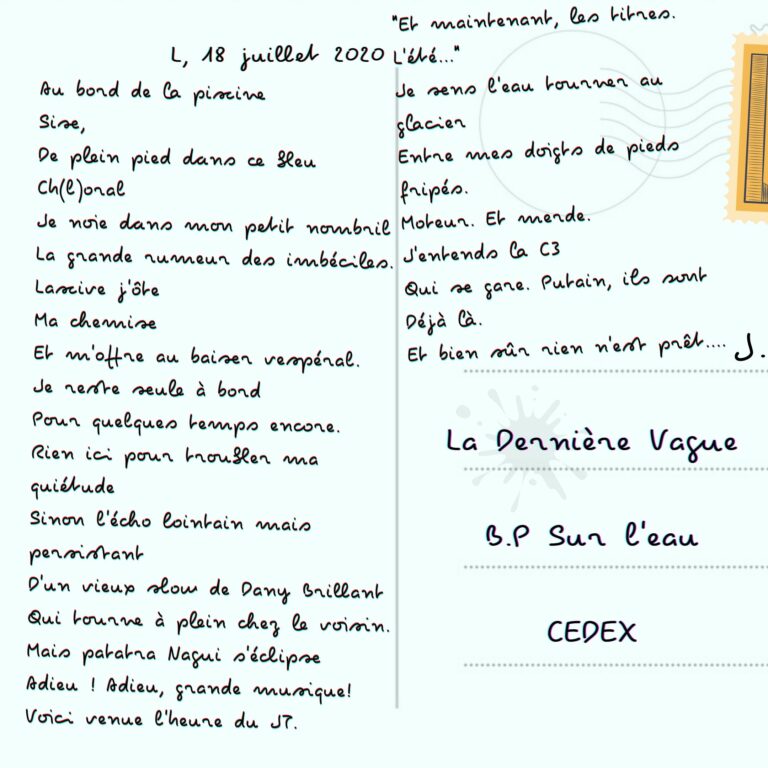 L, 18 juillet 2020
Au bord de la piscine
Sise,
De plein pied dans ce bleu
Ch(l)oral
Je noie dans mon petit nombril
La grande rumeur des imbéciles.
Lascive j'ôte
Ma chemise
Et m'offre au baiser vespéral.
Je reste seule à bord
Pour quelques temps encore.
Rien ici pour troubler ma
quiétude
Sinon l'écho lointain mais
persistant
D'un vieux slow de Dany Brillant
Qui tourne à plein chez le voisin.
Mais patatra Nagui s'éclipse
Adieu ! Adieu, grande musique!
Voici venue l'heure du JT.
"Et maintenant, les titres.
L'été..."
Je sens l'eau tourner au
glacier
Entre mes doigts de pieds
fripés.
Moteur. Et merde.
J'entends la C3
Qui se gare. Putain, ils sont
Déjà là.
Et bien sûr rien n'est prêt.... J.
La Dernière Vague
B.P Sur l'eau
CEDEX